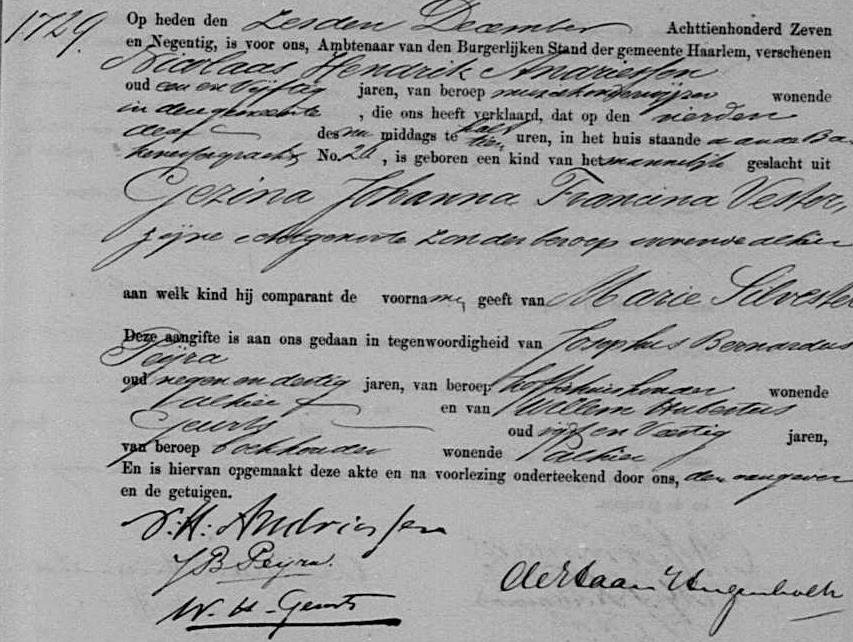 1729.
Op heden den zesden December Achttienhonderd Zeven
en Negentig, is voor ons, Ambtenaar van den Burgerlijken Stand der gemeente Haarlem, verschenen
Nicolaas Hendrik Andriessen
oud een en vijftig jaren, van beroep muziekonderwijzer wonende
in deze gemeente, die ons heeft verklaard, dat op den vierden
dezer des na middags te half tien uren, in het huis staande aan de Ba-
kenessergracht No. , is geboren een kind van het mannelijk geslacht uit
Gezina Johanna Francina Vester,
zijne echtgenoote zonder beroep wonende alhier
aan welk kind hij comparant de voornamen geeft van Marie Silvester
Deze aangifte is aan ons gedaan in tegenwoordigheid van Josephus Bernardus
Peijra
oud negen en dertig jaren, van beroep koffiehuishouder wonende
alhier en van Willem Hubertus
Geurts oud vijf en Veertig jaren,
van beroep boekhouder wonende alhier
En is hiervan opgemaakt deze akte en na voorlezing onderteekend door ons, den aangever
en de getuigen.
N. H. Andriessen
J B Peijra.
W. H. Geurts
de Haan Hugenholtz